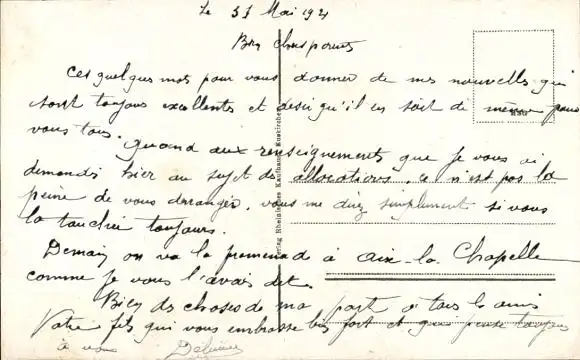 Le 31 Mai 1921
Bien chers parents
Ces quelques mots pour vous donner de mes nouvelles qui
sont toujours excellentes et desir qu'il en soit de même pour
vous tous. quand aux renseignements que je vous ai
demandé hier au sujet des allocations, ce n'est pas la
peine de vous deranger, vous me direz simplement si vous
la touchée toujours.
Demain on va la promenade à Aix-la-Chapelle
comme je vous l'avais dit.
Bien des choses de ma part à tous les amis
Votre fils qui vous embrasse bien fort et qui pense toujours
à vous
Verlag Rheinisches Kaufhaus Euskirchen